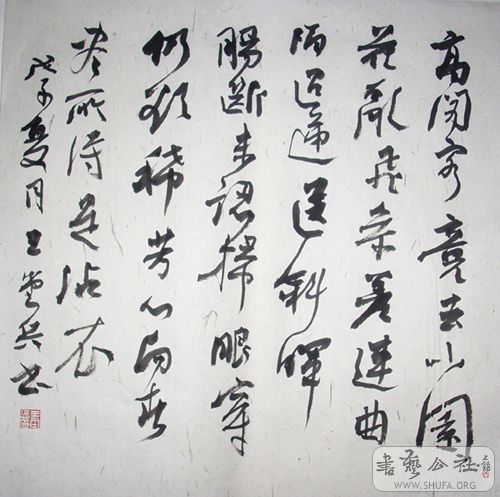 高閣客竟去小園
花亂飛參差連曲
陌迢遞送斜暉
腸斷未認掃眼穿
仍欲稀芳心向春
盡所得是沾衣
戊子夏月王兵書
書藝公社
WWW.SHUFA.ORG